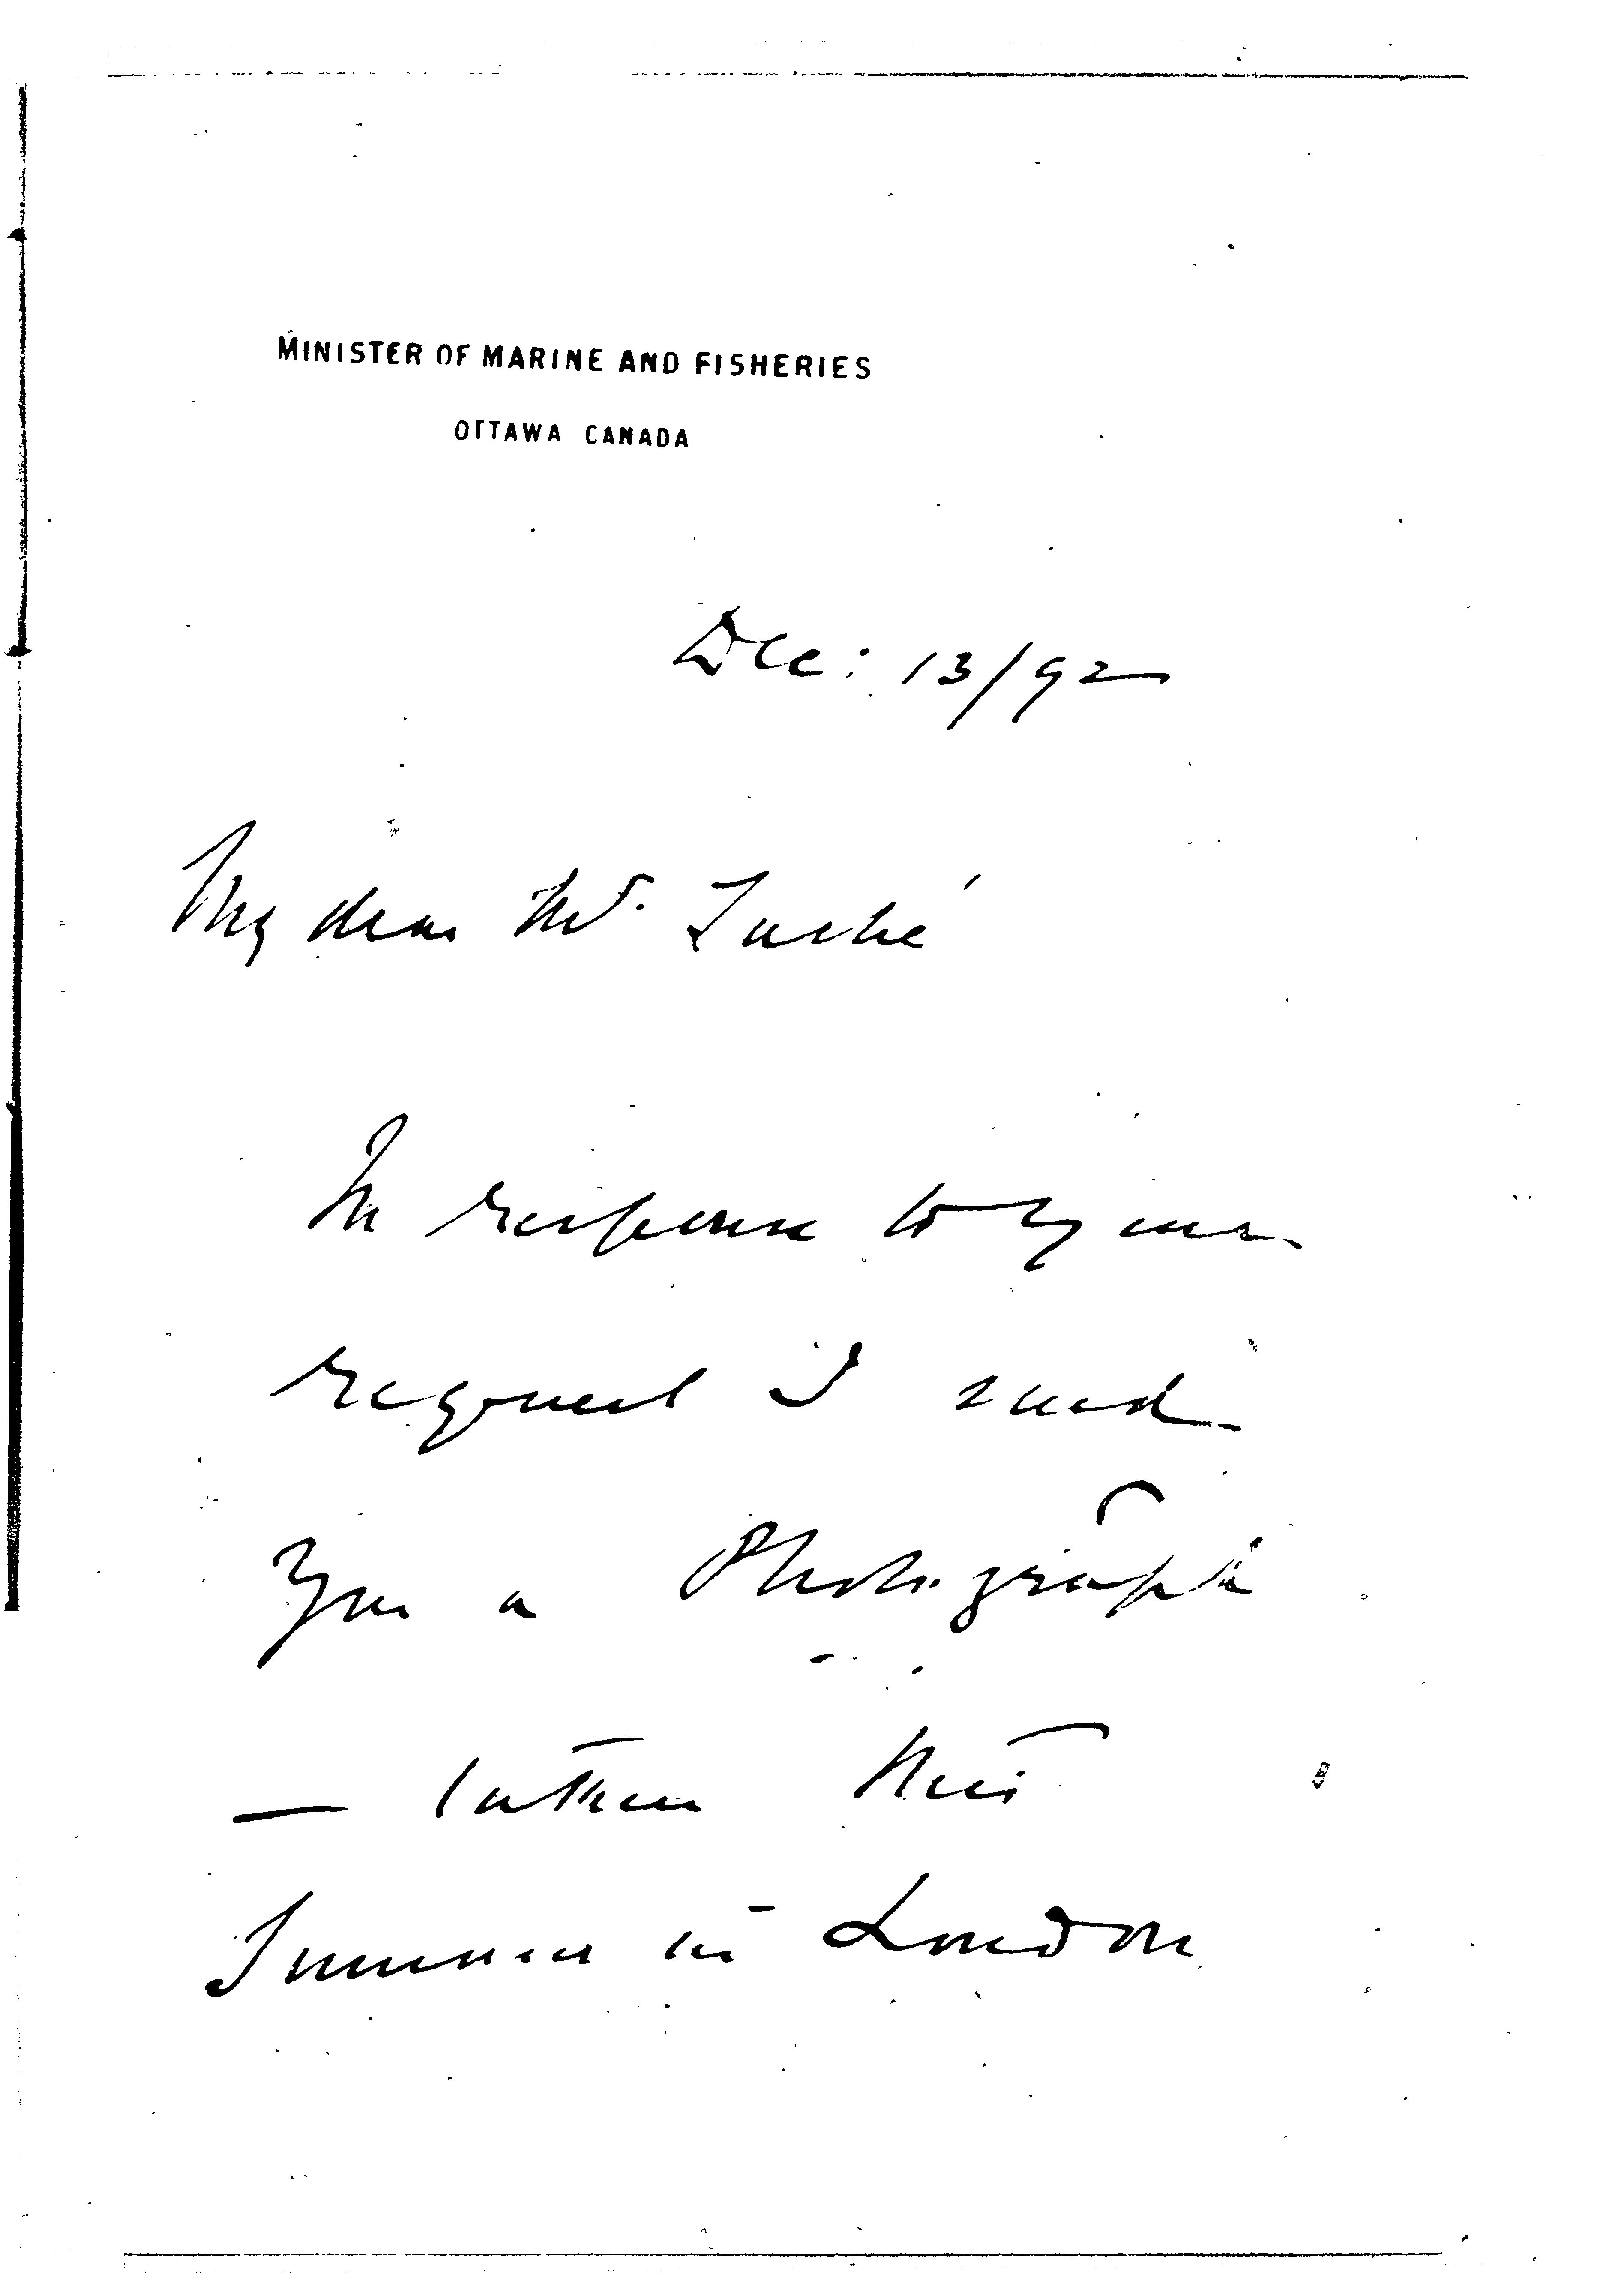 MINISTER OF MARINE AND FISHERIES
OTTAWA CANADA
Dec: 13/92
My dear Mr. Taché
In response to your
request I send
you a Photograph
— taken this
Summer in London